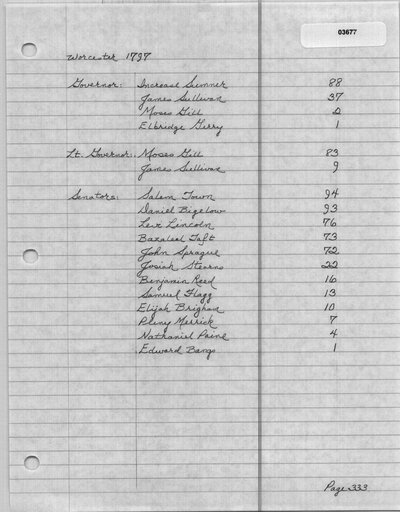 03677
Worcester 1797
Governor: Increase Sumner 88
James Sullivan 37
Moses Gill 2
Elbridge Gerry 1
Lt. Governor: Moses Gill 83
James Sullivan 9
Senators: Salem Town 94
Daniel Bigelow 93
Levi Lincoln 76
Bazaleel Taft 73
John Sprague 72
Josiah Stearns 22
Benjamin Reed 16
Samuel Flagg 13
Elijah Brigham 10
Pliny Merrick 7
Nathaniel Paine 4
Edward Bangs 1
Page 333